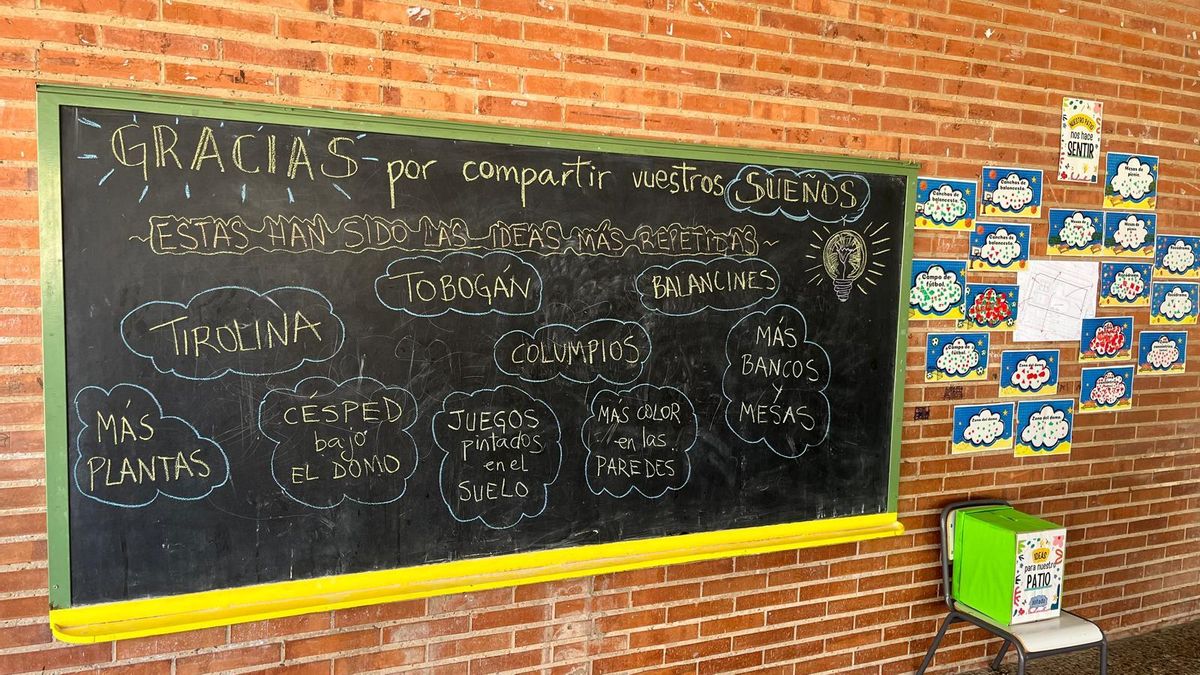 GRACIAS por compartir vuestros SUEÑOS
ESTAS HAN SIDO LAS IDEAS MÁS REPETIDAS
TOBOGÁN
BALANCINES
TIROLINA
COLUMPIOS
MÁS
BANCOS
Y
MESAS
MÁS
PLANTAS
CÉSPED
bajo
EL DOMO
JUEGOS
pintados
en el
SUELO
MÁS COLOR
en las
PAREDES
NUESTRO PATIO
nos hace
SENTIR
Canchas de
baloncesto
Canchas de
baloncesto
Mesas de
pinpón
Campo de fútbol
Campo de
Zona del domo
IDEAS
para nuestro
PATIO